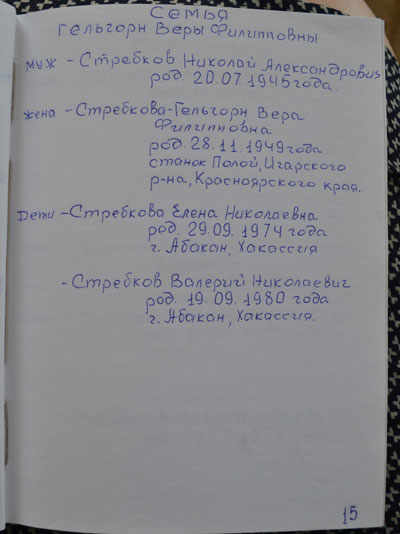 Семья
Гельгорн Веры Филипповны
муж - Стребков Николай Александровиг
род. 20.07.1945года.
жена - Стребкова-Гельгорн Вера
Филипповна
род. 28.11.1949года
станок Полой, Игарского
р-на, Красноярского края.
Дети - Стребкова Елена Николаевна
род. 29.09.1974 года
г. Абакан, Хакассия
- Стребков Валерий Николаевиг
род. 19.09.1980 года
г. Абакан, Хакассия.
15